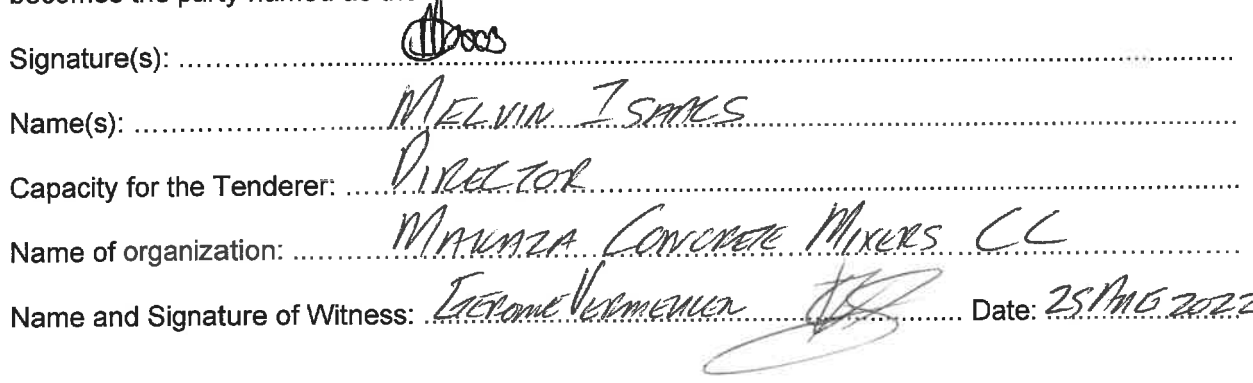 Signature(s):
Name(s): MELVIN ISAACS
Capacity for the Tenderer: DIRECTOR
Name of organization: MAKAZA CONCRETE MIXERS CC
Name and Signature of Witness: GEROME VERMEULEN Date: 25 AUG 2022